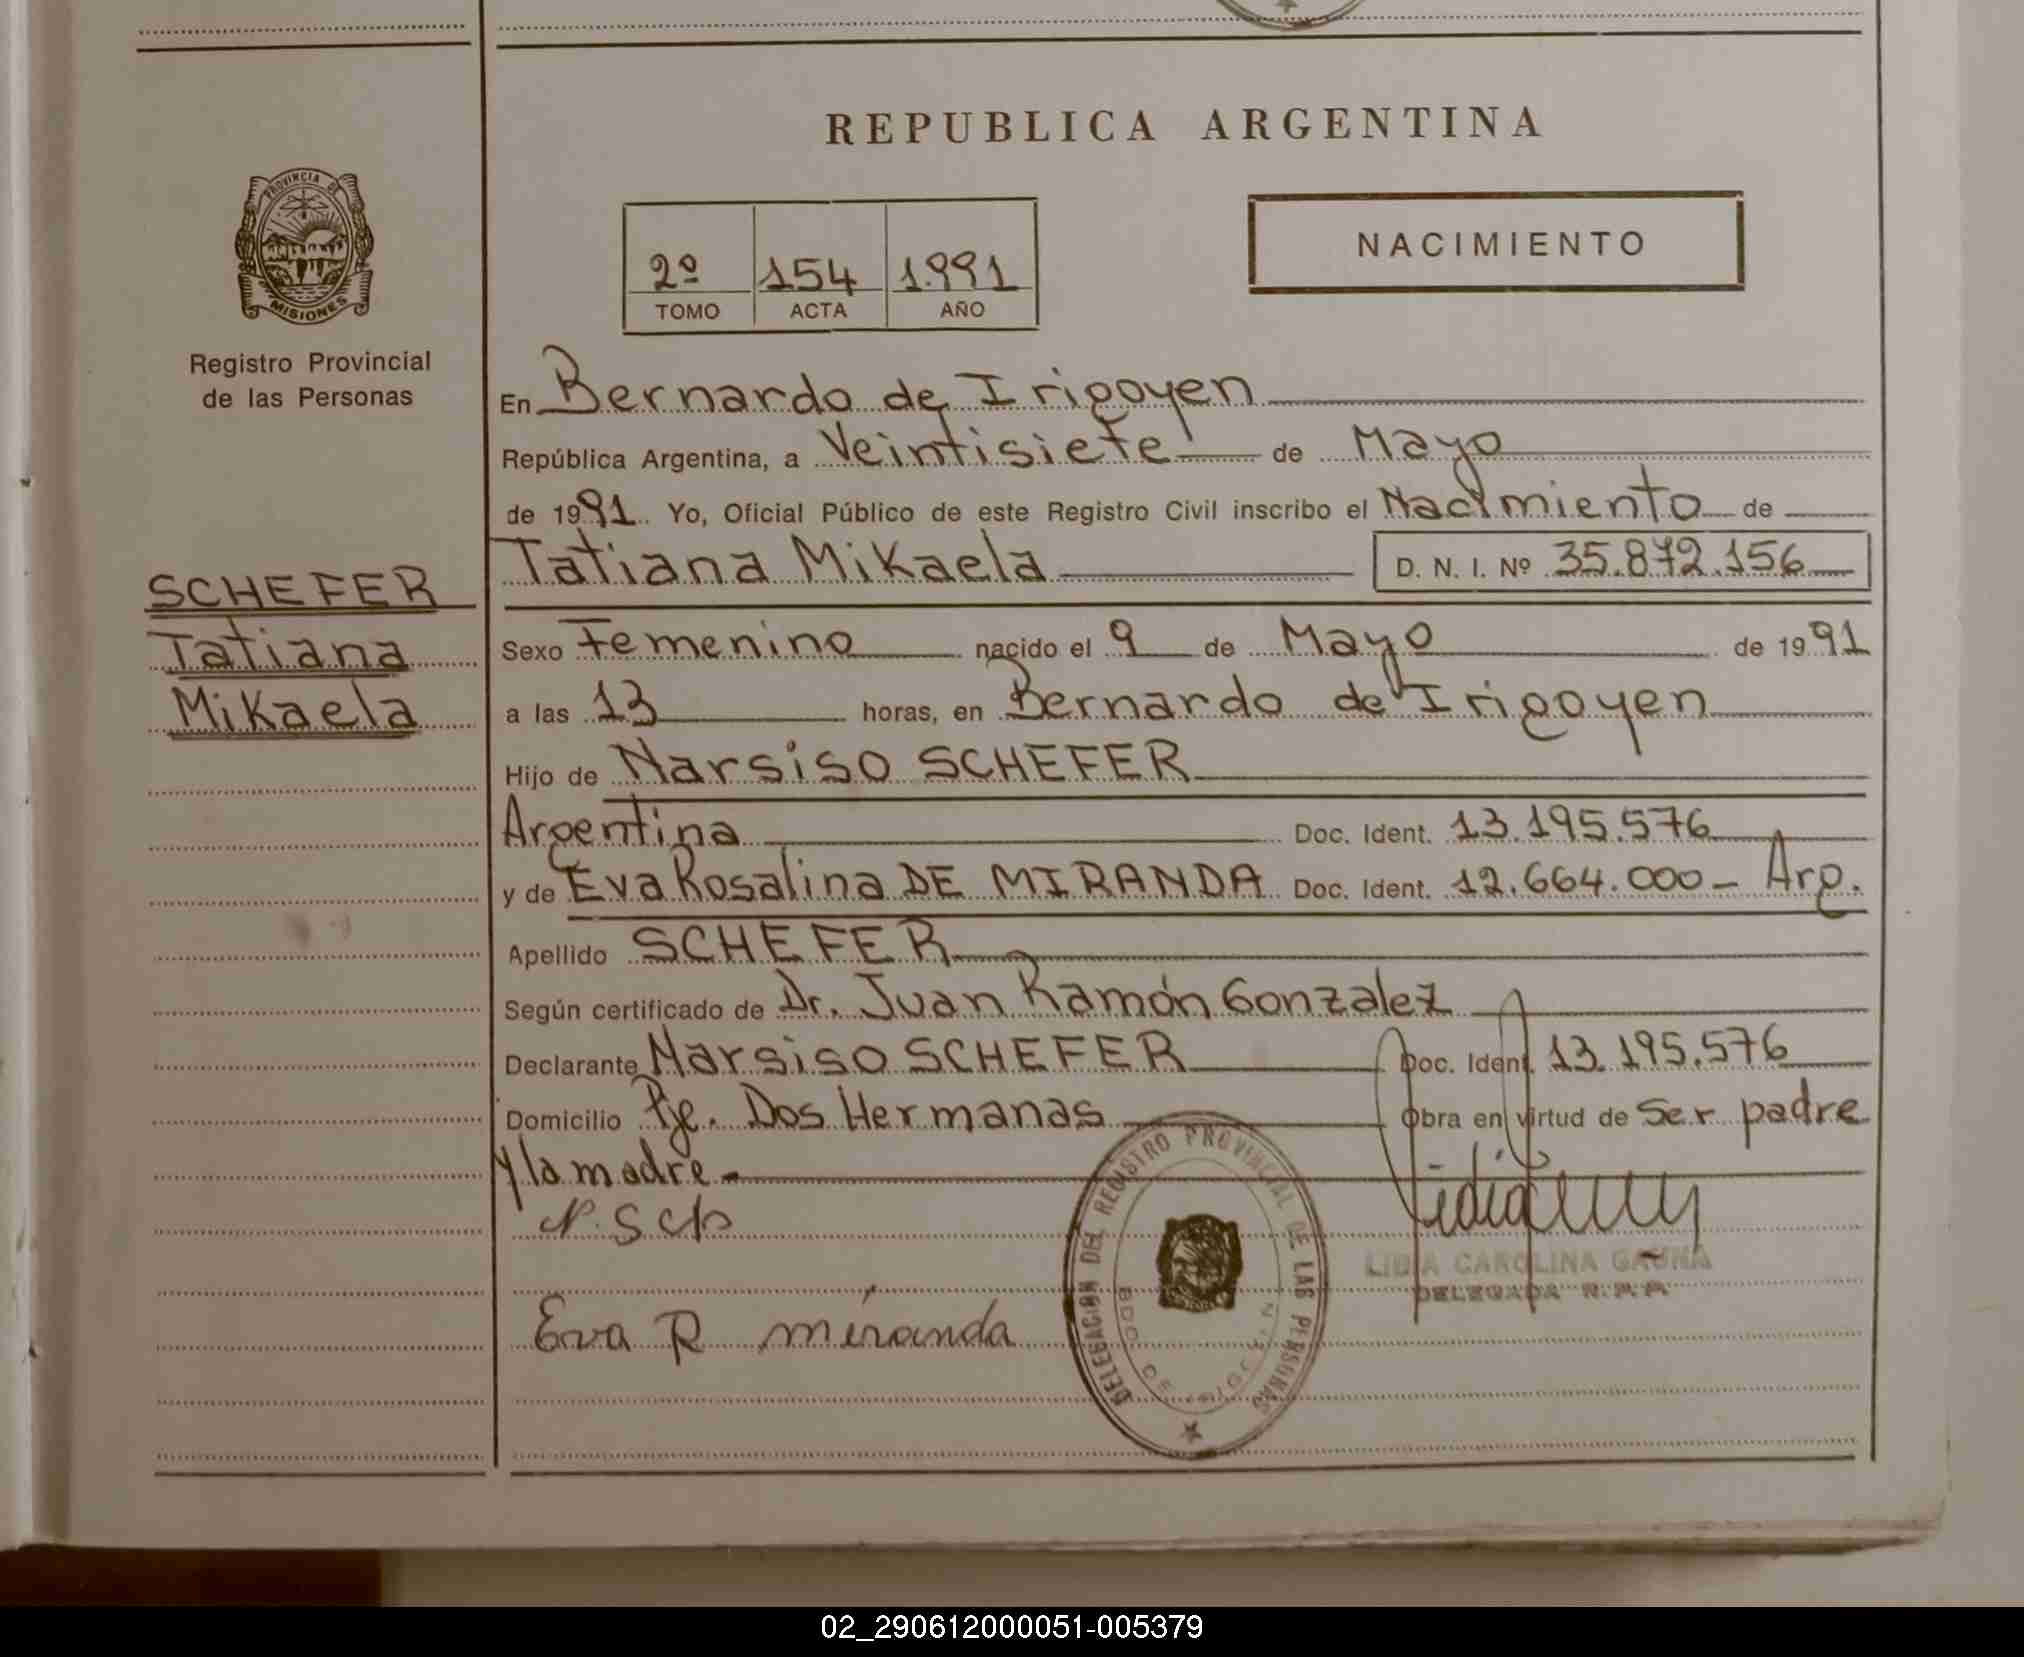 REPUBLICA ARGENTINA
PROVINCIA DE
MISIONES
Registro Provincial
de las Personas
2º 154 1.991
TOMO ACTA AÑO
NACIMIENTO
SCHEFER
Tatiana
Mikaela
En Bernardo de Irigoyen
República Argentina, a Veintisiete de Mayo
de 1991. Yo, Oficial Público de este Registro Civil inscribo el Nacimiento de
Tatiana Mikaela D. N. I. Nº 35.872.156
Sexo Femenino nacido el 9 de Mayo de 1991
a las 13 horas, en Bernardo de Irigoyen
Hijo de Narsiso SCHEFER
Argentina Doc. Ident. 13.195.576
y de Eva Rosalina DE MIRANDA Doc. Ident. 12.664.000 - Arg.
Apellido SCHEFER
Según certificado de Dr. Juan Ramón Gonzalez
Declarante Narsiso SCHEFER Doc. Ident. 13.195.576
Domicilio Pje. Dos Hermanas Obra en virtud de Ser padre
y la madre -
N. Sch
Eva R miranda
DELEGACION DEL REGISTRO PROVINCIAL DE LAS PERSONAS
BDO. DE IRIGOYEN
LIDIA CAROLINA GAUNA
DELEGADA R.P.P
02_290612000051-005379